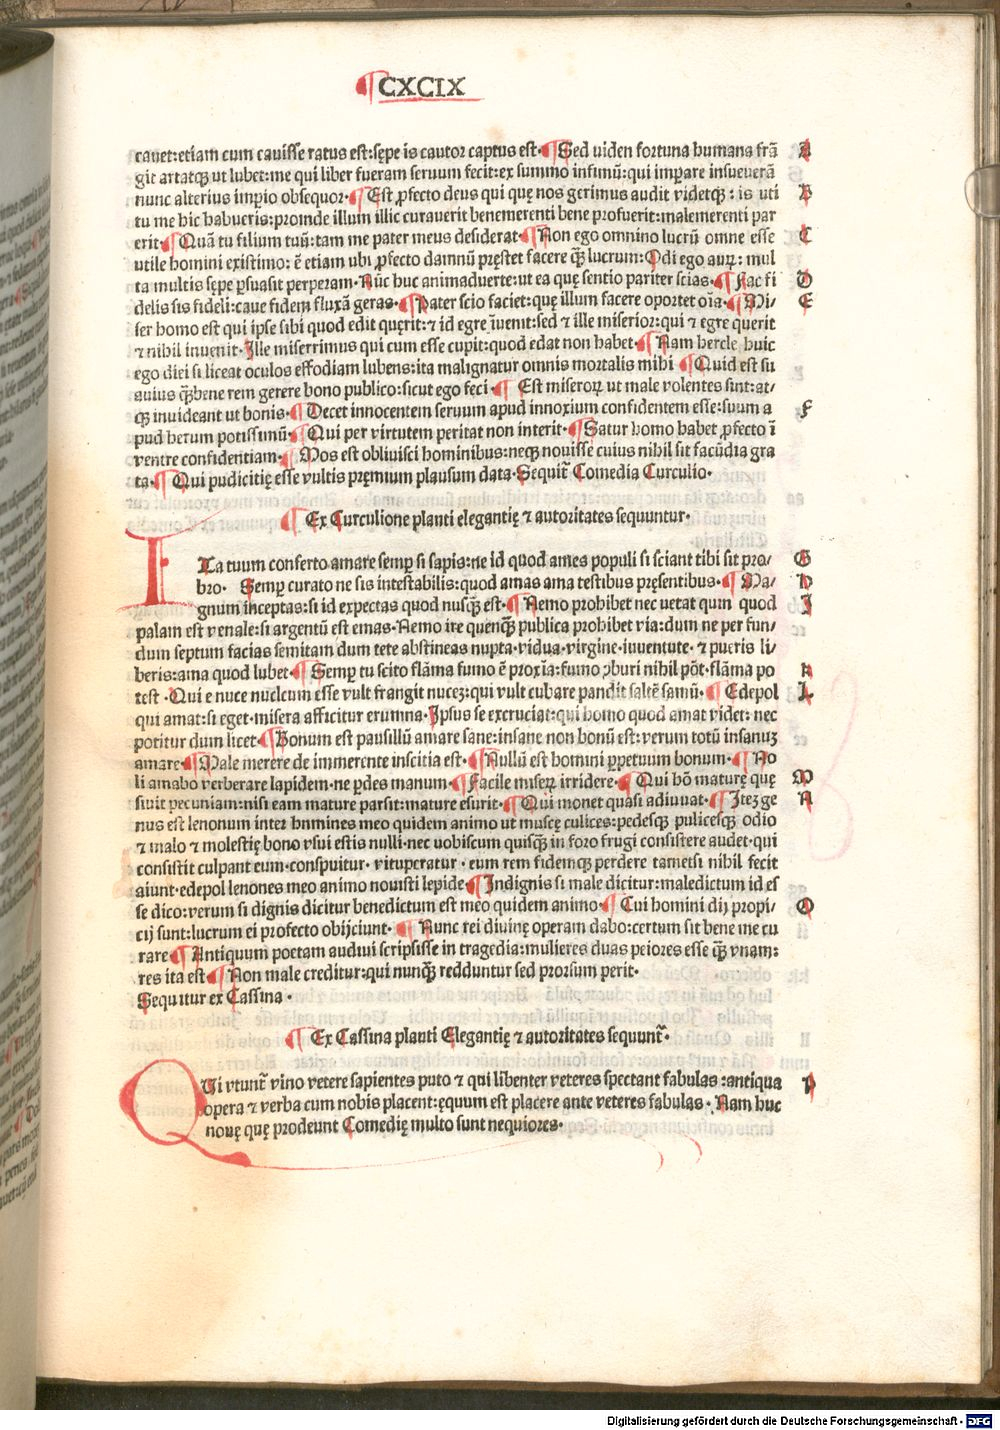 ¶ CXCIX
cauet:etiam cum cauisse ratus est:sępe is cautor captus est· ¶ Sed uiden fortuna humana frã A
git artatqꝫ ut lubet:me qui liber fueram seruum fecit:ex summo infimũ:qui imꝑare insueuerã
nunc alterius imꝑio obsequor· ¶ Est ꝓfecto deus qui quę nos gerimus audit videtqꝫ: is uti B
tu me hic habueris:proinde illum illic curauerit benemerenti bene profuerit:malemerenti par
erit· ¶ Quã tu filium tuũ:tam me pater meus desiderat· ¶ Non ego omnino lucrũ omne esse C
utile homini existimo: ẽ etiam ubi ꝓfecto damnũ pręstet facere qꝫ̃ lucrum: Odi ego auꝝ: mul
ta multis sępe ꝑsuasit perperam· Nũc huc animaduerte:ut ea quę sentio pariter scias· ¶ Fac fi D
delis sis fideli:caue fidem fluxã geras· ¶ Pater scio faciet:quę illum facere oportet oĩa· ¶ Mi/ E
ser homo est qui ipse sibi quod edit quęrit:⁊ id egre ĩuenit:sed ⁊ ille miserior:qui ⁊ egre querit
⁊ nihil inuenit· Ille miserrimus qui cum esse cupit:quod edat non habet· ¶ Nam hercle huic
ego diei si liceat oculos effodiam lubens:ita malignatur omnis mortalis mihi ¶ Quid est su
auius qꝫ̃bene rem gerere bono publico:sicut ego feci· ¶ Est miseroꝝ ut male volentes sint:at-
qꝫ inuideant ut bonis· ¶ Decet innocentem seruum apud innoxium confidentem esse:suum a F
pud herum potissimũ· ¶ Qui per virtutem peritat non interit· ¶ Satur homo habet ꝓfecto ĩ
ventre confidentiam· ¶ Mos est obliuisci hominibus:neqꝫ nouisse cuius nihil sit facũdia gra
ta· ¶ Qui pudicitię esse vultis pręmium plausum data· Sequit᷑ Comedia Curculio·
¶ Ex Curculione planti elegantię ⁊ autoritates sequuntur·
I Ta tuum conserto amare semꝑ si sapis:ne id quod ames populi si sciant tibi sit pro/ G
bro· Semꝑ curato ne sis intestabilis:quod amas ama testibus pręsentibus· ¶ Ma/ H
gnum inceptas:si id expectas quod nusqꝫ̃ est· ¶ Nemo prohibet nec uetat quin quod I
palam est venale:si argentũ est emas· Nemo ire quenqꝫ̃ publica prohibet via:dum ne per fun/
dum septum facias semitam dum tete abstineas nupta·vidua·virgine·iuuentute· ⁊ pueris li/
beris:ama quod lubet· ¶ Semꝑ tu scito flãma fumo ẽ proxĩa:fumo ꝯburi nihil põt·flãma po K
test ·Qui e nuce nucleum esse vult frangit nuceꝫ:qui vult cubare pandit saltẽ samũ· ¶ Edepol L
qui amat:si eget·misera afficitur erumna· Ipsus se excruciat:qui homo quod amat videt: nec
potitur dum licet· ¶ Bonum est pausillũ amare sane:insane non bonũ est:verum totũ insanuꝫ
amare· ¶ Male merere de immerente inscitia est· ¶ Nullũ est homini ꝑpetuum bonum· ¶ No
li amabo verberare lapidem·ne ꝑdes manum· ¶ Facile miseꝝ irridere· ¶ Qui hõ maturę quę M
siuit pecuniam:nisi eam mature parsit:mature esurit· ¶ Qui monet quasi adiuuat· ¶ Iteꝫ ge N
nus est lenonum inter hnmines meo quidem animo ut muscę culices:pedesqꝫ pulicesqꝫ odio
⁊ malo ⁊ molestię bono vsui estis nulli·nec uobiscum quisqꝫ̃ in foro frugi consistere audet·qui
consistit culpant eum·conspuitur· vituperatur · eum rem fidemqꝫ perdere tametsi nihil fecit
aiunt·edepol lenones meo animo nouisti lepide· ¶ Indignis si male dicitur:maledictum id es
se dico:verum si dignis dicitur benedictum est meo quidem animo· ¶ Cui homini dij propi/ O
cij sunt:lucrum ei profecto obijciunt· ¶ Nunc rei diuinę operam dabo:certum sit bene me cu
rare· ¶ Antiquum poetam audiui scripsisse in tragedia:mulieres duas peiores esse qꝫ̃ vnam:
res ita est· ¶ Non male creditur:qui nunqꝫ̃ redduntur sed prorsum perit·
Sequitur ex Cassina ·
¶ Ex Cassina planti Elegantię ⁊ autoritates sequunt᷑·
Q Vi vtunt᷑ vino vetere sapientes puto ⁊ qui libenter veteres spectant fabulas :antiqua P
opera ⁊ verba cum nobis placent:ęquum est placere ante veteres fabulas · Nam huc
nouę quę prodeunt Comedię multo sunt nequiores·
Digitalisierung gefördert durch die Deutsche Forschungsgemeinschaft - DFG